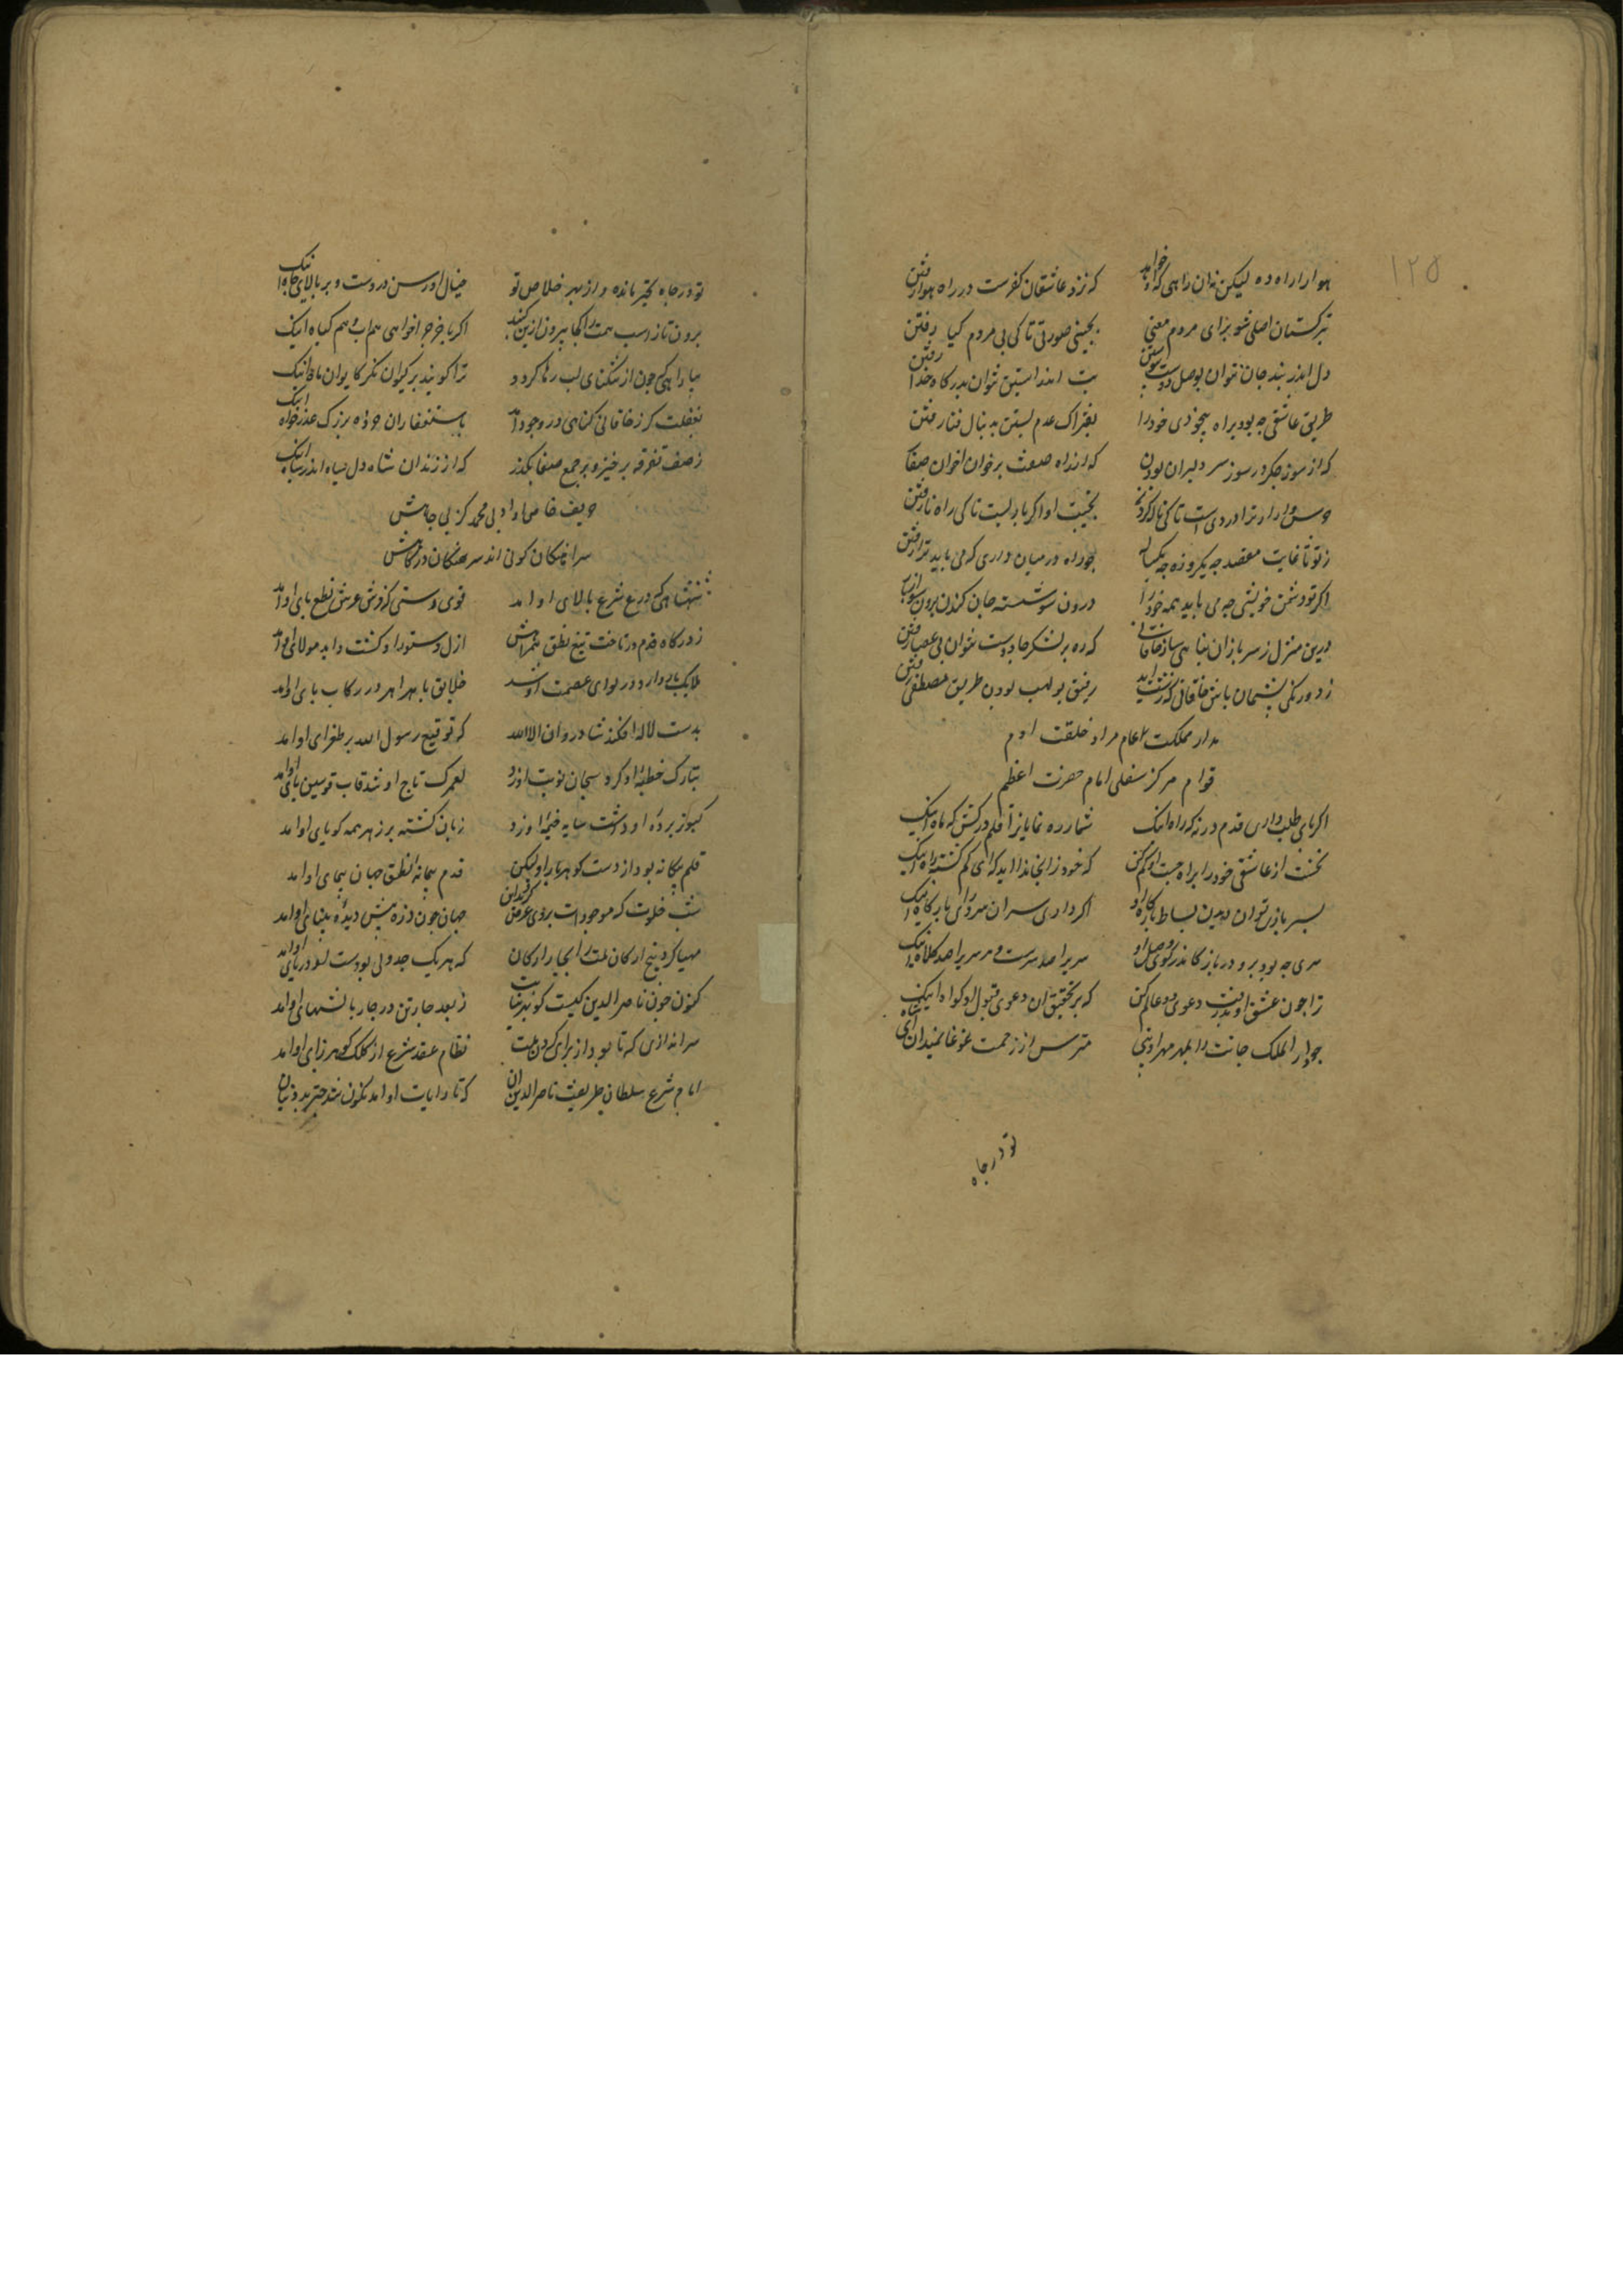 ۱۲۵
هوا را راه ده لیکن نه آن راهی که او خواهد که نزد عاشقان کفرست در راه هوا رفتن
بترکستان اصلی شو برای مردم معنی بچینی صورتی تا کی پی مردم کیا رفتن
دل اندر بند جان نتوان بوصل دوست پیوستن بت اندر آستین نتوان بدرگاه خدا رفتن
طریق عاشقی چه بود براه بیخودی خود را بفتراک عدم بستن به دنبال فنا رفتن
که از سوز جگر در سوز سر دلبران بودن که از راه صفت برخوان اخوان صفا
بجیبت او اگر ما تا کی راه نا رفتن
ز تو تا غایت مقصد چه یکروزه چه یکساله چو راه در میان داری که می باید ترا رفتن
اگر تو دشمن خویشی چه می باید همه خود را درون سو شسته جان کندن برون سو
درین منزل ز سربازان پناهی ساز خاقانی که ره بر لشکر جادوست نتوان بی عصا رفتن
ز دورنگی پشیمان باش خاقانی که نشاید رفیق بولهب بودن طریق مصطفی رفتن
مدار مملکت مراد خلقت ادم
قوام مرکز سفلی امام حضرت اعظم
اگر پای طلب داری قدم در نه که راه اینک شمار ره نمایان را قلم درکش که ماه اینک
نخست از عاشقی خود را براه جست او گم کن که خود زانجا ندا اید که ای گم گشته راه اینک
بسر بازی توان دیدن بساط بارگاه او اگر داری سران سر درای بارگاه اینک
سری چه بود برو درباز کاندر کوی وصل او سر براصد سرست و هر سر براصد کلاه اینک
ترا چون عشق او دعوی دو عالم کن که بر تحقیق آن دعوی قبول او گواه اینک
چو دار الملک جانت را بمهر مهر او بینی مترس از زحمت غوغا بمیدان آی شاه اینک
تو در چاه
تو در چاه تحیر مانده و از بهر خلاص تو خیال او رسن در دست و بر بالای چاه اینک
برون تاز اسب همت را کجا بیرون ازین گنبد اگر باخرج اخواهی هم هم گیاه اینک
مبادا هی چون از تنگنای لب رها کردد ترا گویند بر کیوان نگر کایوان ماه اینک
بغفلت گر ز خاقانی گناهی در وجود آمد باستغفار ان جواه بزرگ عذرخواه اینک
ز صف تفرقه برخیز و بر جمع صفا بگذر که از زندان شاه دل سپاه اندر سپاه اینک
حریف خاص او ادنی محمد کز پی جاهش
سراهنگان کونی اند سرهنگان درگاهش
شهنشاهی که درع شرع بالای او امد قوی دستی که فرش عرش نطع پای او آمد
ز درگاه قدم درتاخت تیغ نطق همراهش ازل دستور او گشت و ابد مولای او آمد
ملایک باد وار در لوای عصمت او شد خلایق با بهراهر در رکاب بای او آمد
بدست لااله افگند شادروان الا الله که توقیع رسول الله بر طغرای او آمد
تبارک خطبهٔ او کرد سبحان نوبت او زد لعمرک تاج او شد قاب قوسین جای او آمد
کبوتر پردهٔ او داشت سایه خیمهٔ او زد زبان کشته بر زهر همه گویای او آمد
قلم بیگانه بود از دست گوهربار او لیکن قدم پیمانهٔ نطق جهان پیمای او آمد
شب خلوت که موجودات بروی عرض کردندان جهان چون ذره پیش دیدهٔ بینای او آمد
مهیا کرد پنج ارکان ملت را بچار ارکان که هر یک جدولی بودست کز دریای او امد
کنون چون ناصر الدین کیست کو در نیابت ز بعد چارتن در چار بالشهای او آمد
سرانداز که تا بود از برای گردن ملت نظام عقد شرع از کلک گوهرزای او آمد
امام شرع سلطان طریقت ناصر الدین ان که تا رایات او آمد نگون شد چتر بد دینان